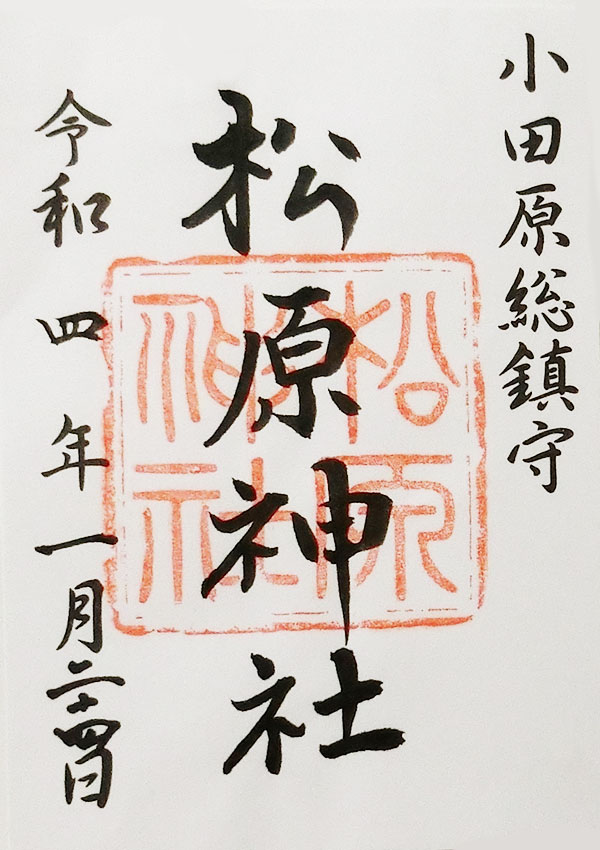 小田原総鎮守
松原神社
令和四年一月二十四日